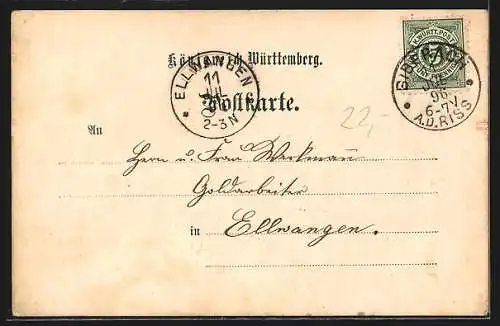 Königreich Württemberg.
Postkarte.
ELLWANGEN
11
JUL
2-3 N
K. WÜRTT. POST
5
BIBERACH
96
6-7 V
A.D. RISS
22,-
An
Herrn u. Frau Werkmann
Goldarbeiter
in Ellwangen.